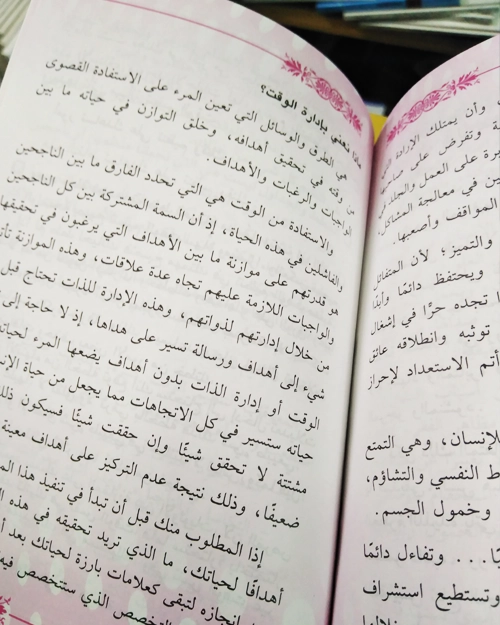 ماذا نعني بإدارة الوقت؟
هي الطرق والوسائل التي تعين المرء على الاستفادة القصوى
من وقته في تحقيق أهدافه، وخلق التوازن في حياته ما بين
الواجبات والرغبات والأهداف.
والاستفادة من الوقت هي التي تحدد الفارق ما بين الناجحين
والفاشلين في هذه الحياة، إذ أن السمة المشتركة بين كل الناجحين
هو قدرتهم على موازنة ما بين الأهداف التي يرغبون في تحقيقها
والواجبات اللازمة عليهم تجاه عدة علاقات، وهذه الموازنة
من خلال إدارتهم لذواتهم، وهذه الإدارة للذات تحتاج قبل
شيء إلى أهداف ورسالة تسير على هداها، إذ لا حاجة إلى
الوقت أو إدارة الذات بدون أهداف يضعها المرء لحياته
حياته ستسير في كل الاتجاهات مما يجعل من حياة
مشتتة لا تحقق شيئًا وإن حققت شيئًا فسيكون
ضعيفًا، وذلك نتيجة عدم التركيز على أهداف معينة
إذا المطلوب منك قبل أن تبدأ في تنفيذ هذا
أهدافًا لحياتك، ما الذي تريد تحقيقه في هذه
إنجازه لتبقى كعلامات بارزة لحياتك بعد
التخصص الذي ستتخصص
وأن يمتلك الإرادة
وتفرض على
على العمل والجلد
في معالجة المشاكل
المواقف وأصعبها.
والتميز؛ لأن المتفائل
ويحتفظ دائمًا
تجده حرًا في إشغال
توثبه وانطلاقه عائق
أتم الاستعداد لإحراز
للإنسان، وهي التمتع
النفسي والتشاؤم،
وخمول الجسم.
... وتفاءل دائمًا
وتستطيع استشراف